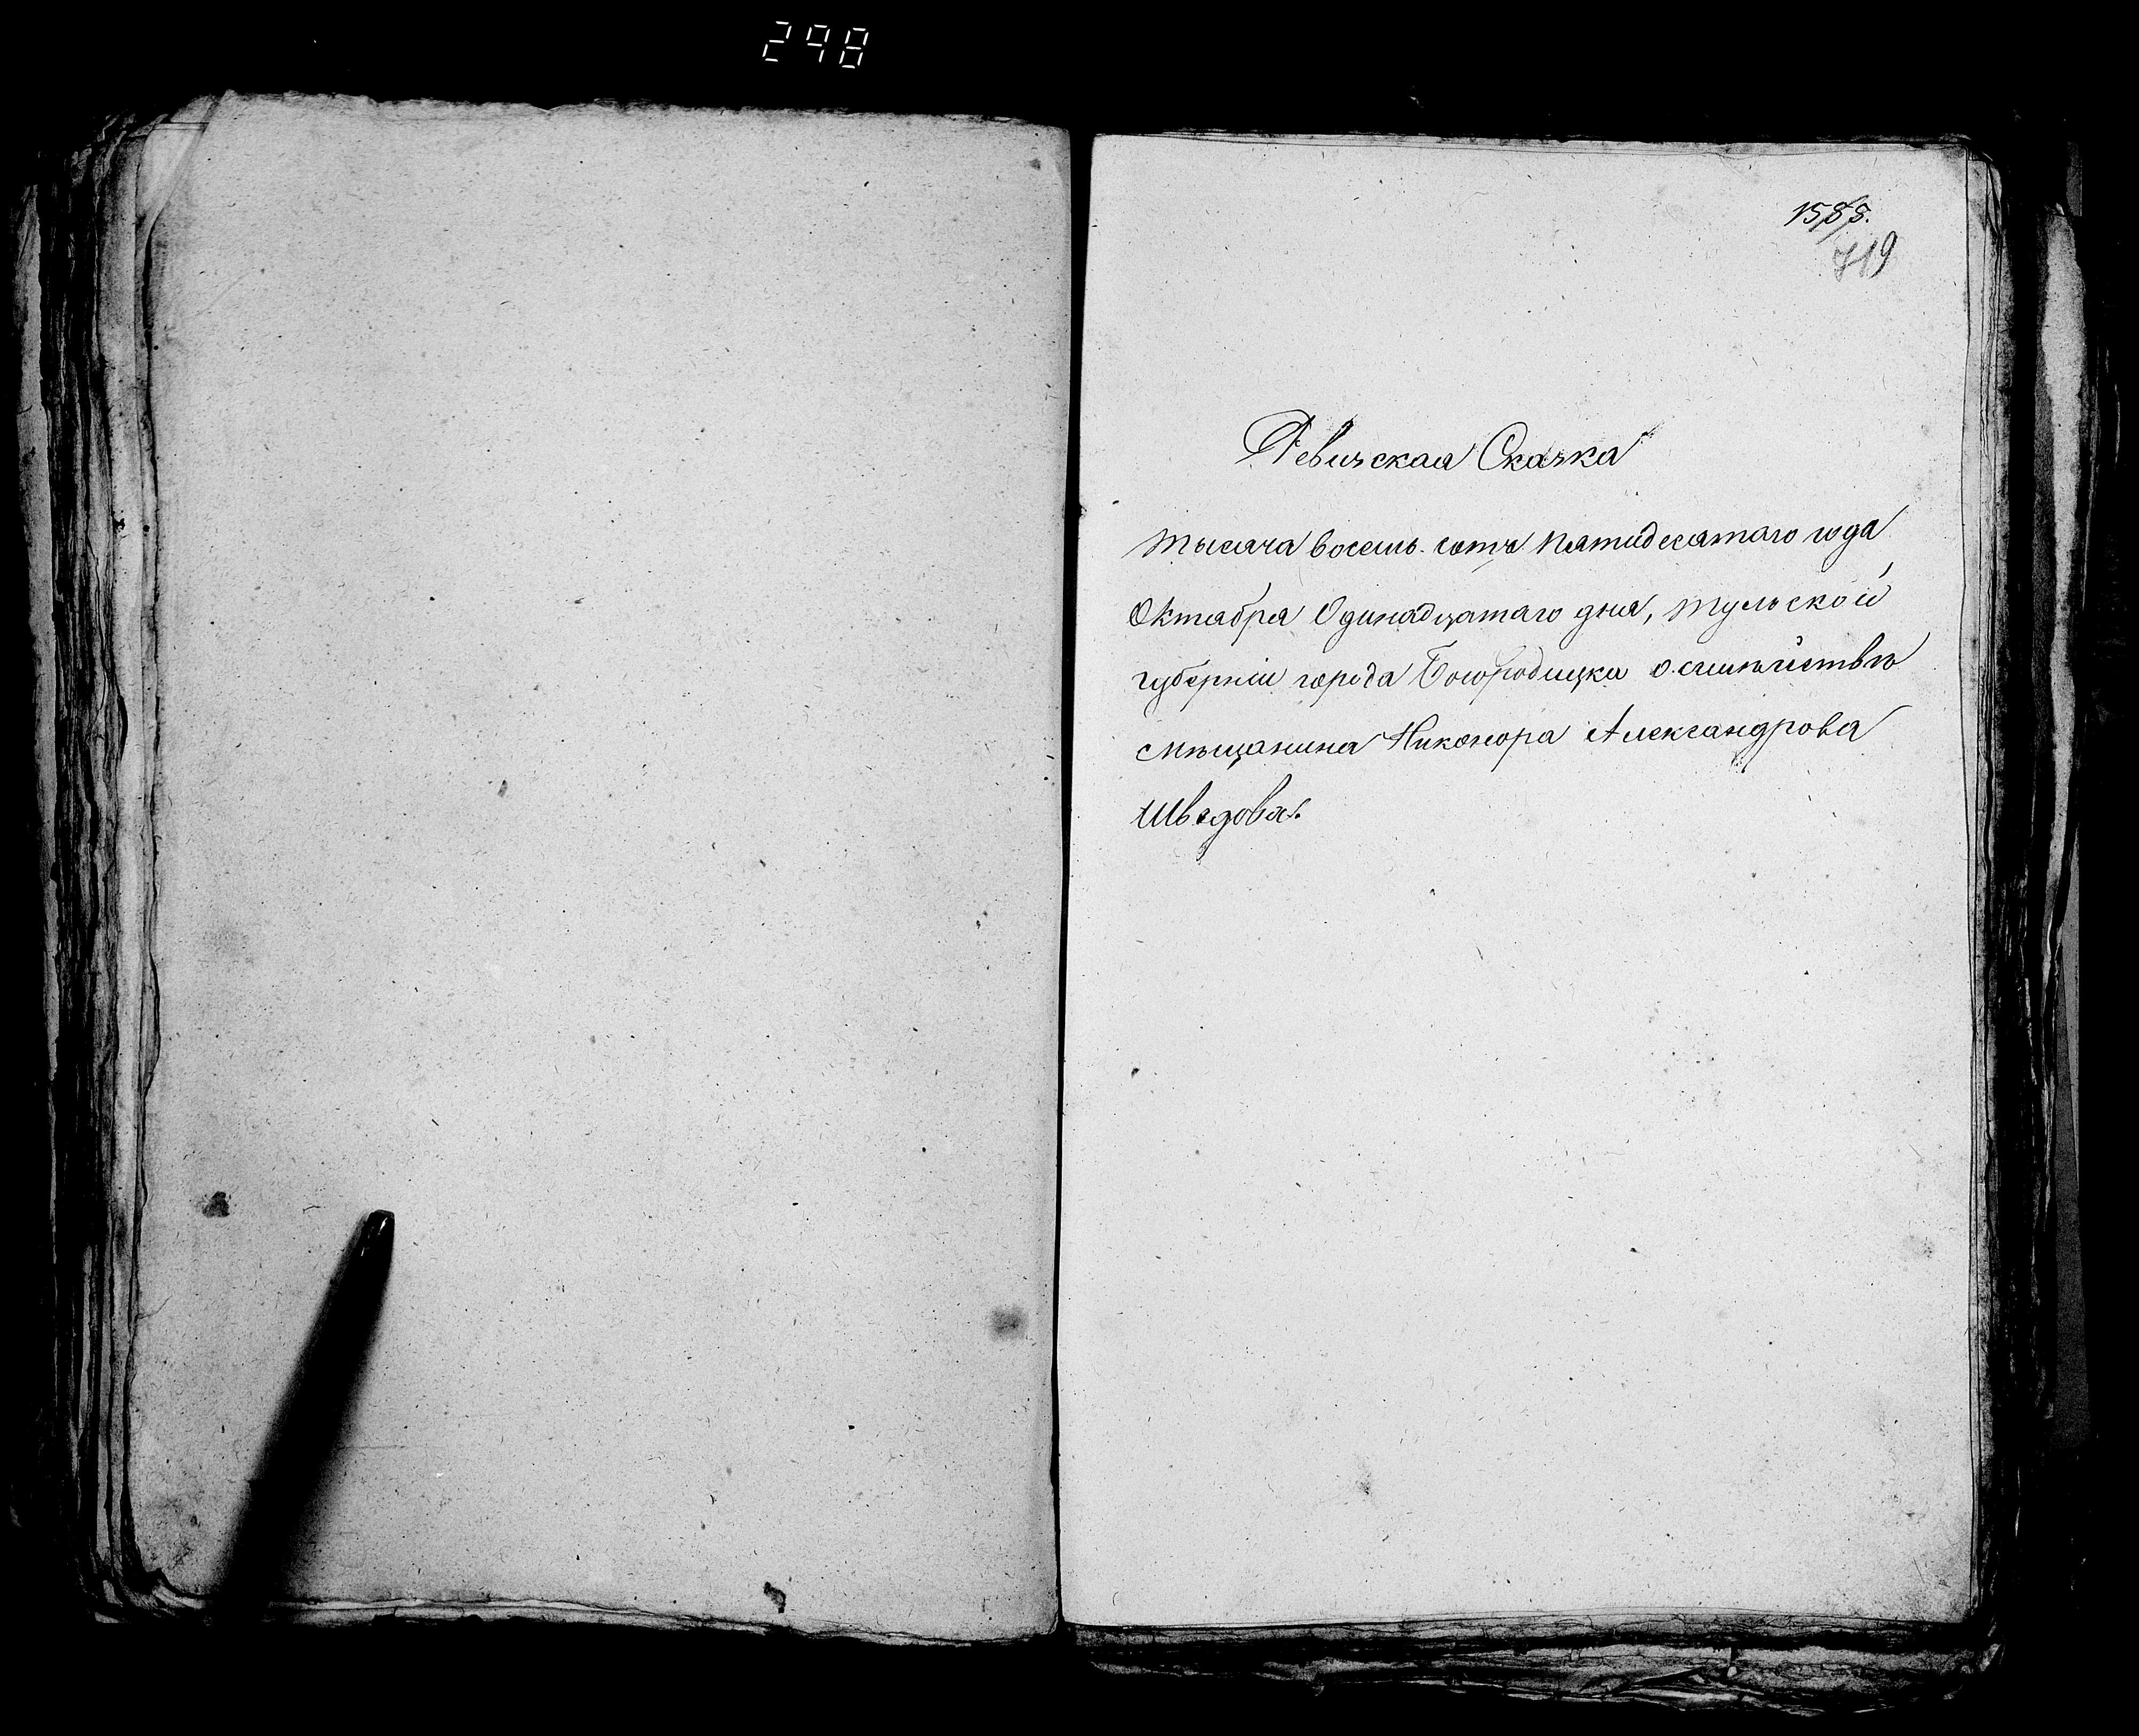 298
1588.
719
Ревизская Сказка
Тысяча восемь сотъ пятидесятаго года
Октября Одинадцатаго дня, Тульской
губерніи города Богородицка о семѣйствѣ
мѣщанина Никонора Александрова
Шведова.